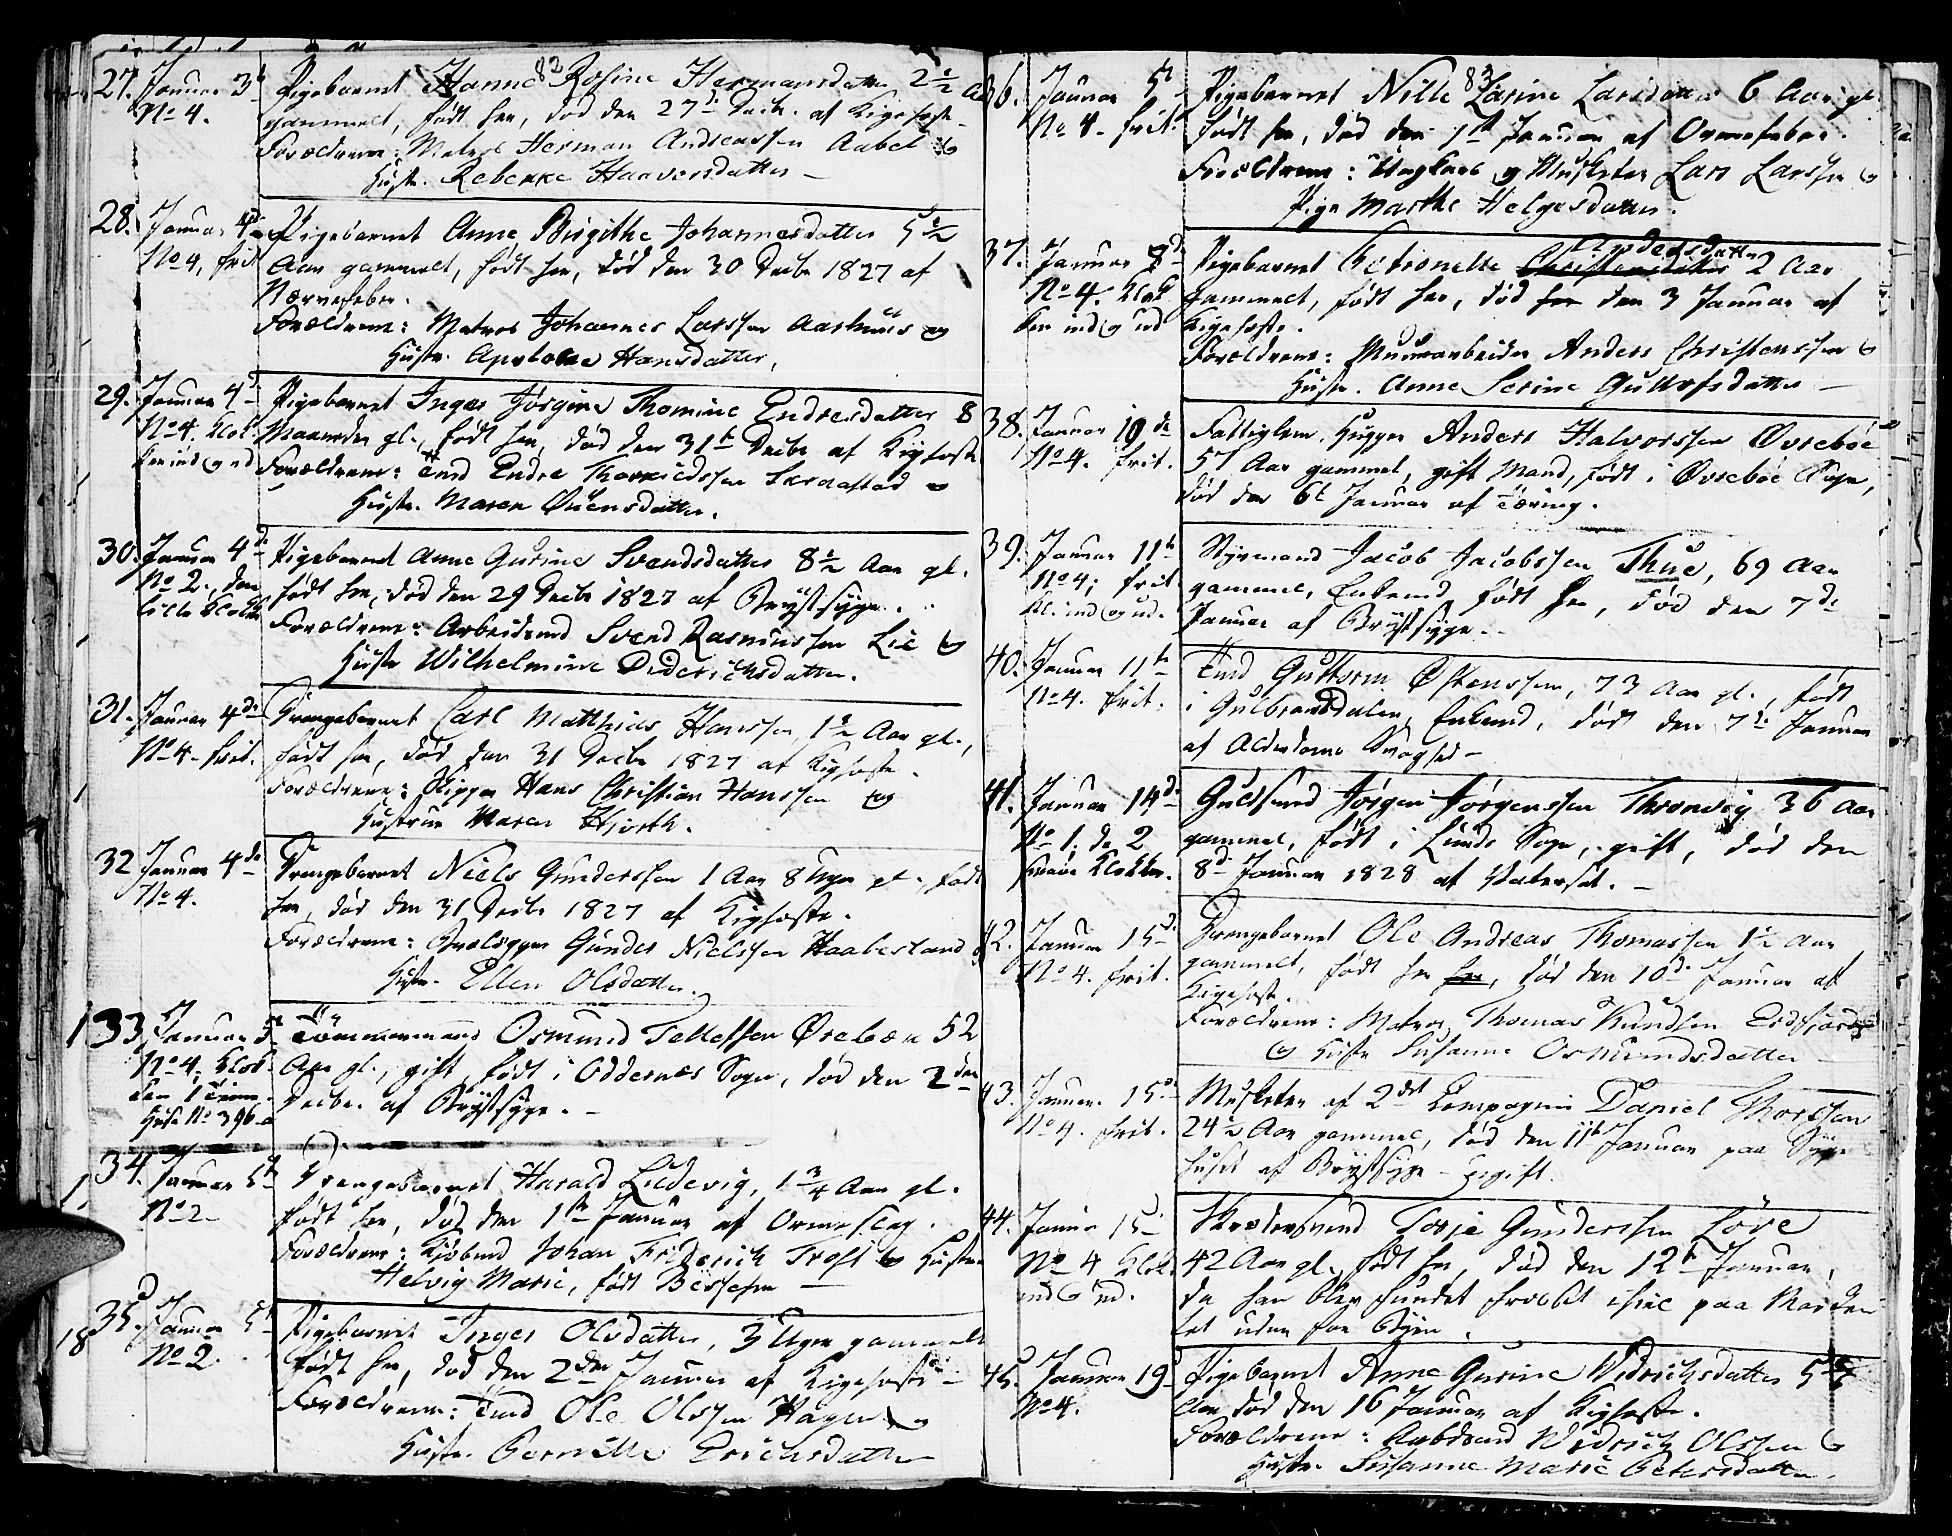 82
27. Januar 3
No 4.
Pigebarnet Hanne Rosine Hermansdatter 2 1/2 Aar
gammelt, født her, død den 27 Decbr. af Kighoste.
Forældrene: Matros Herman Andreassen Aabel og
Hustr. Rebekke Haaversdatter
28. Januar 4de
No 4, frit
Pigebarnet Anne Birgithe Johannesdatter 5 1/2
Aar gammelt, født her, død den 30 Decbr 1827 af
Nervefeber.
Forældrene: Matros Johannes Larssen Aarhuus og
Hustr. Apolone Hansdatter.
29. Januar 4de
No 4. Klok
ken ind og ud
Pigebarnet Inger Jørgine Thomine Endresdatter 8
Maaneder gl., født her, død den 31te Decbr af Kighoste
Forældrene: Tmd Endre Thorkildssen og
Hustr. Maren Ouensdatter.
30. Januar 4de
No 2., den
lille Klokke
Pigebarnet Anne Gurine Svendsdatter 8 1/2 Aar gl.
født her, død den 29 Decbr 1827 af Brystsyge.
Forældrene: Arbeidsmd Svend Rasmussen Lie og
Hustr Wilhelmine Diderichsdatter.
31. Januar 4de
No 4. frit.
Drengebarnet Carl Matthias Hanssen, 1 1/2 Aar gl.,
født her, død den 31 Decbr 1827 af Kighoste.
Forældrene: Skipper Hans Christian Hanssen og
Hustrue Maren Hjorth.
32 Januar 4de
No 4.
Drengebarnet Niels Gunderssen 1 Aar 8 Uger gl., født
her, død den 31 Decbr 1827 af Kighoste.
Forældrene: Gunder Nielssen Haabesland og
Hustr. Ellen Olsdatter.
133 Januar 5
No 4, Klok-
ken 1 Time.
Huse No 396
Tømmermand Osmund Tellefssen Ørebæk 52
Aar gl., gift, født i Oddernes Sogn, død den 2den
Decbr. af Brystsyge.
34. Januar 5
No 2
Drengebarnet Harald Ludevig, 1 3/4 Aar gl.
født her, død den 1ste Januar af Ormeslag.
Forældrene: Kjøbmd Johan Friderich Trost og Hustru
Helvig Marie, født Bessesen
35. Januar 5
18 No 2.
Pigebarnet Inger Olsdatter, 3 Uger gammelt
født her, død den 2den Januar af Kighoste
Forældrene: Tmd Ole Olssen Hagen og
Hustr. Pernille Erichsdatter
83
36. Januar 5
No 4. frit.
Pigebarnet Nille Larine Larsdatter 6 Aar gl.
født her, død den 1ste Januar af Ormefeber.
Forældrene: Ungkarl og Musketer Lars Larssen og
Pige Marthe Helgesdatter.
37. Januar 8de
No 4. Klok
ken ind og ud
Pigebarnet Petronelle Christensdatter Andersdatter 2 Aar
gammelt, født her, død her den 3 Januar af
Kighoste.
Forældrene: Muurarbeider Anders Christenssen og
Hustr. Anne Serine Guttofsdatter
38. Januar 10de
No 4. frit.
Fattiglem, Hugger Anders Halvorssen Øvrebøe
57 Aar gammel, gift Mand, født i Øvrebøe Sogn,
død den 6te Januar af Tæring.
39. Januar 11te
No 4; frit
Kl. ind og ud.
Styrmand Jacob Jacobssen Thue, 69 Aar
gammel, Enkemd, født her, død den 7de
Januar af Brystsyge.
40. Januar 11te
No 4. frit.
Tmd Guttorm Østenssen, 73 Aar gl., født
i Gulbrandsdalen, Enkemd, død den 7de Januar
af Alderdoms Svaghed
41. Januar 14de
No 1. de 2
smaae Klokker.
Guldsmed Jørgen Jørgenssen Thronvig 36 Aar
gammel, født i Lunde Sogn, gift, død den
8de Januar 1828 af Vatersot.
42. Januar 15de
No 4. frit.
Drengebarnet Ole Andreas Thomassen 1 1/2 Aar
gammelt, født her her, død den 10de Januar af
Kighoste.
Forældrene: Matros Thomas Knudsen Eidsfjord
og Hustr Susanne Osmundsdatter
43. Januar. 15de
No 4. frit.
Musketer af 2det Compagnie Daniel Thorssen
24 1/2 Aar gammel, død den 11te Januar paa Syge
huset af Brystsyge - ugift.
44. Januar 15
No 4 Klok.
ind og ud.
Skrædersvend Torje Gunderssen Løve
42 Aar gl., født her, død den 12te Januar,
da han blev fundet frosset ihiel paa Marke
let uden for Byen.
45. Januar 19
No 4.
Pigebarnet Anne Gurine Widrichsdatter 5
død den 16 Januar af Kighoste.
Forældrene: Arbdsmd Widrich Olssen og
Hustr. Susanne Marie Petersdatter.